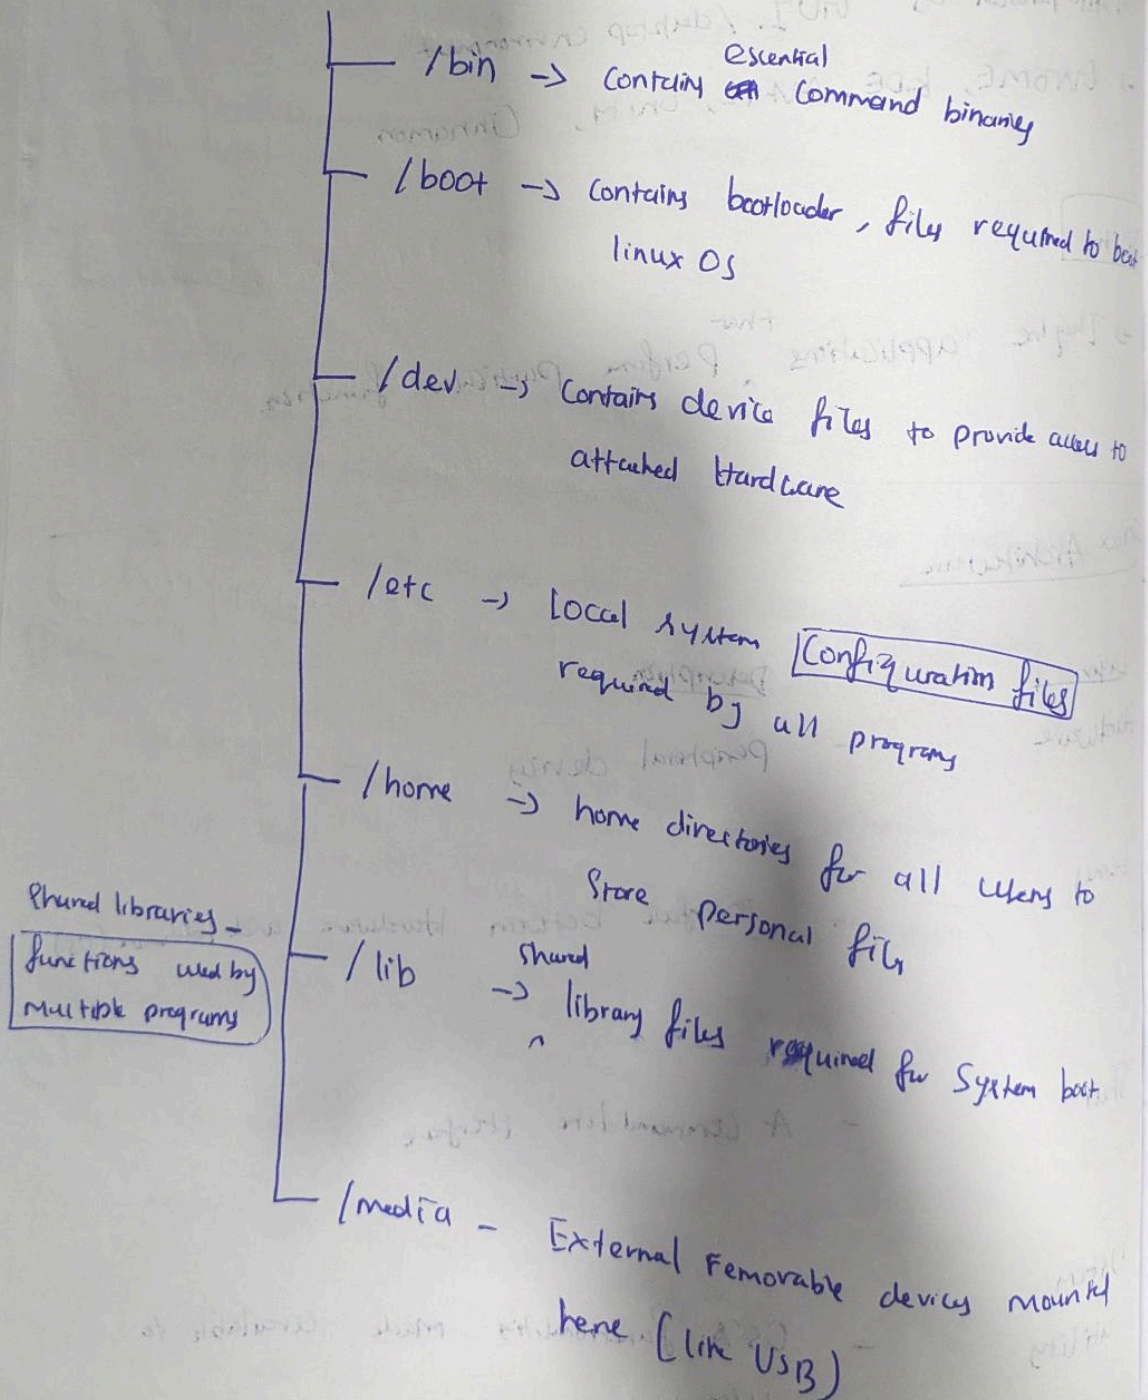 /bin -> contains essential command binaries
/boot -> contains bootloader, files required to boot
linux OS
/dev -> contains device files to provide access to
attached Hardware
/etc -> local system Configuration files
required by all programs
/home -> home directories for all users to
store personal files
Shared libraries -
functions used by
multiple programs
/lib -> shared library files required for System boot
/media - External removable devices mounted
here (like USB)